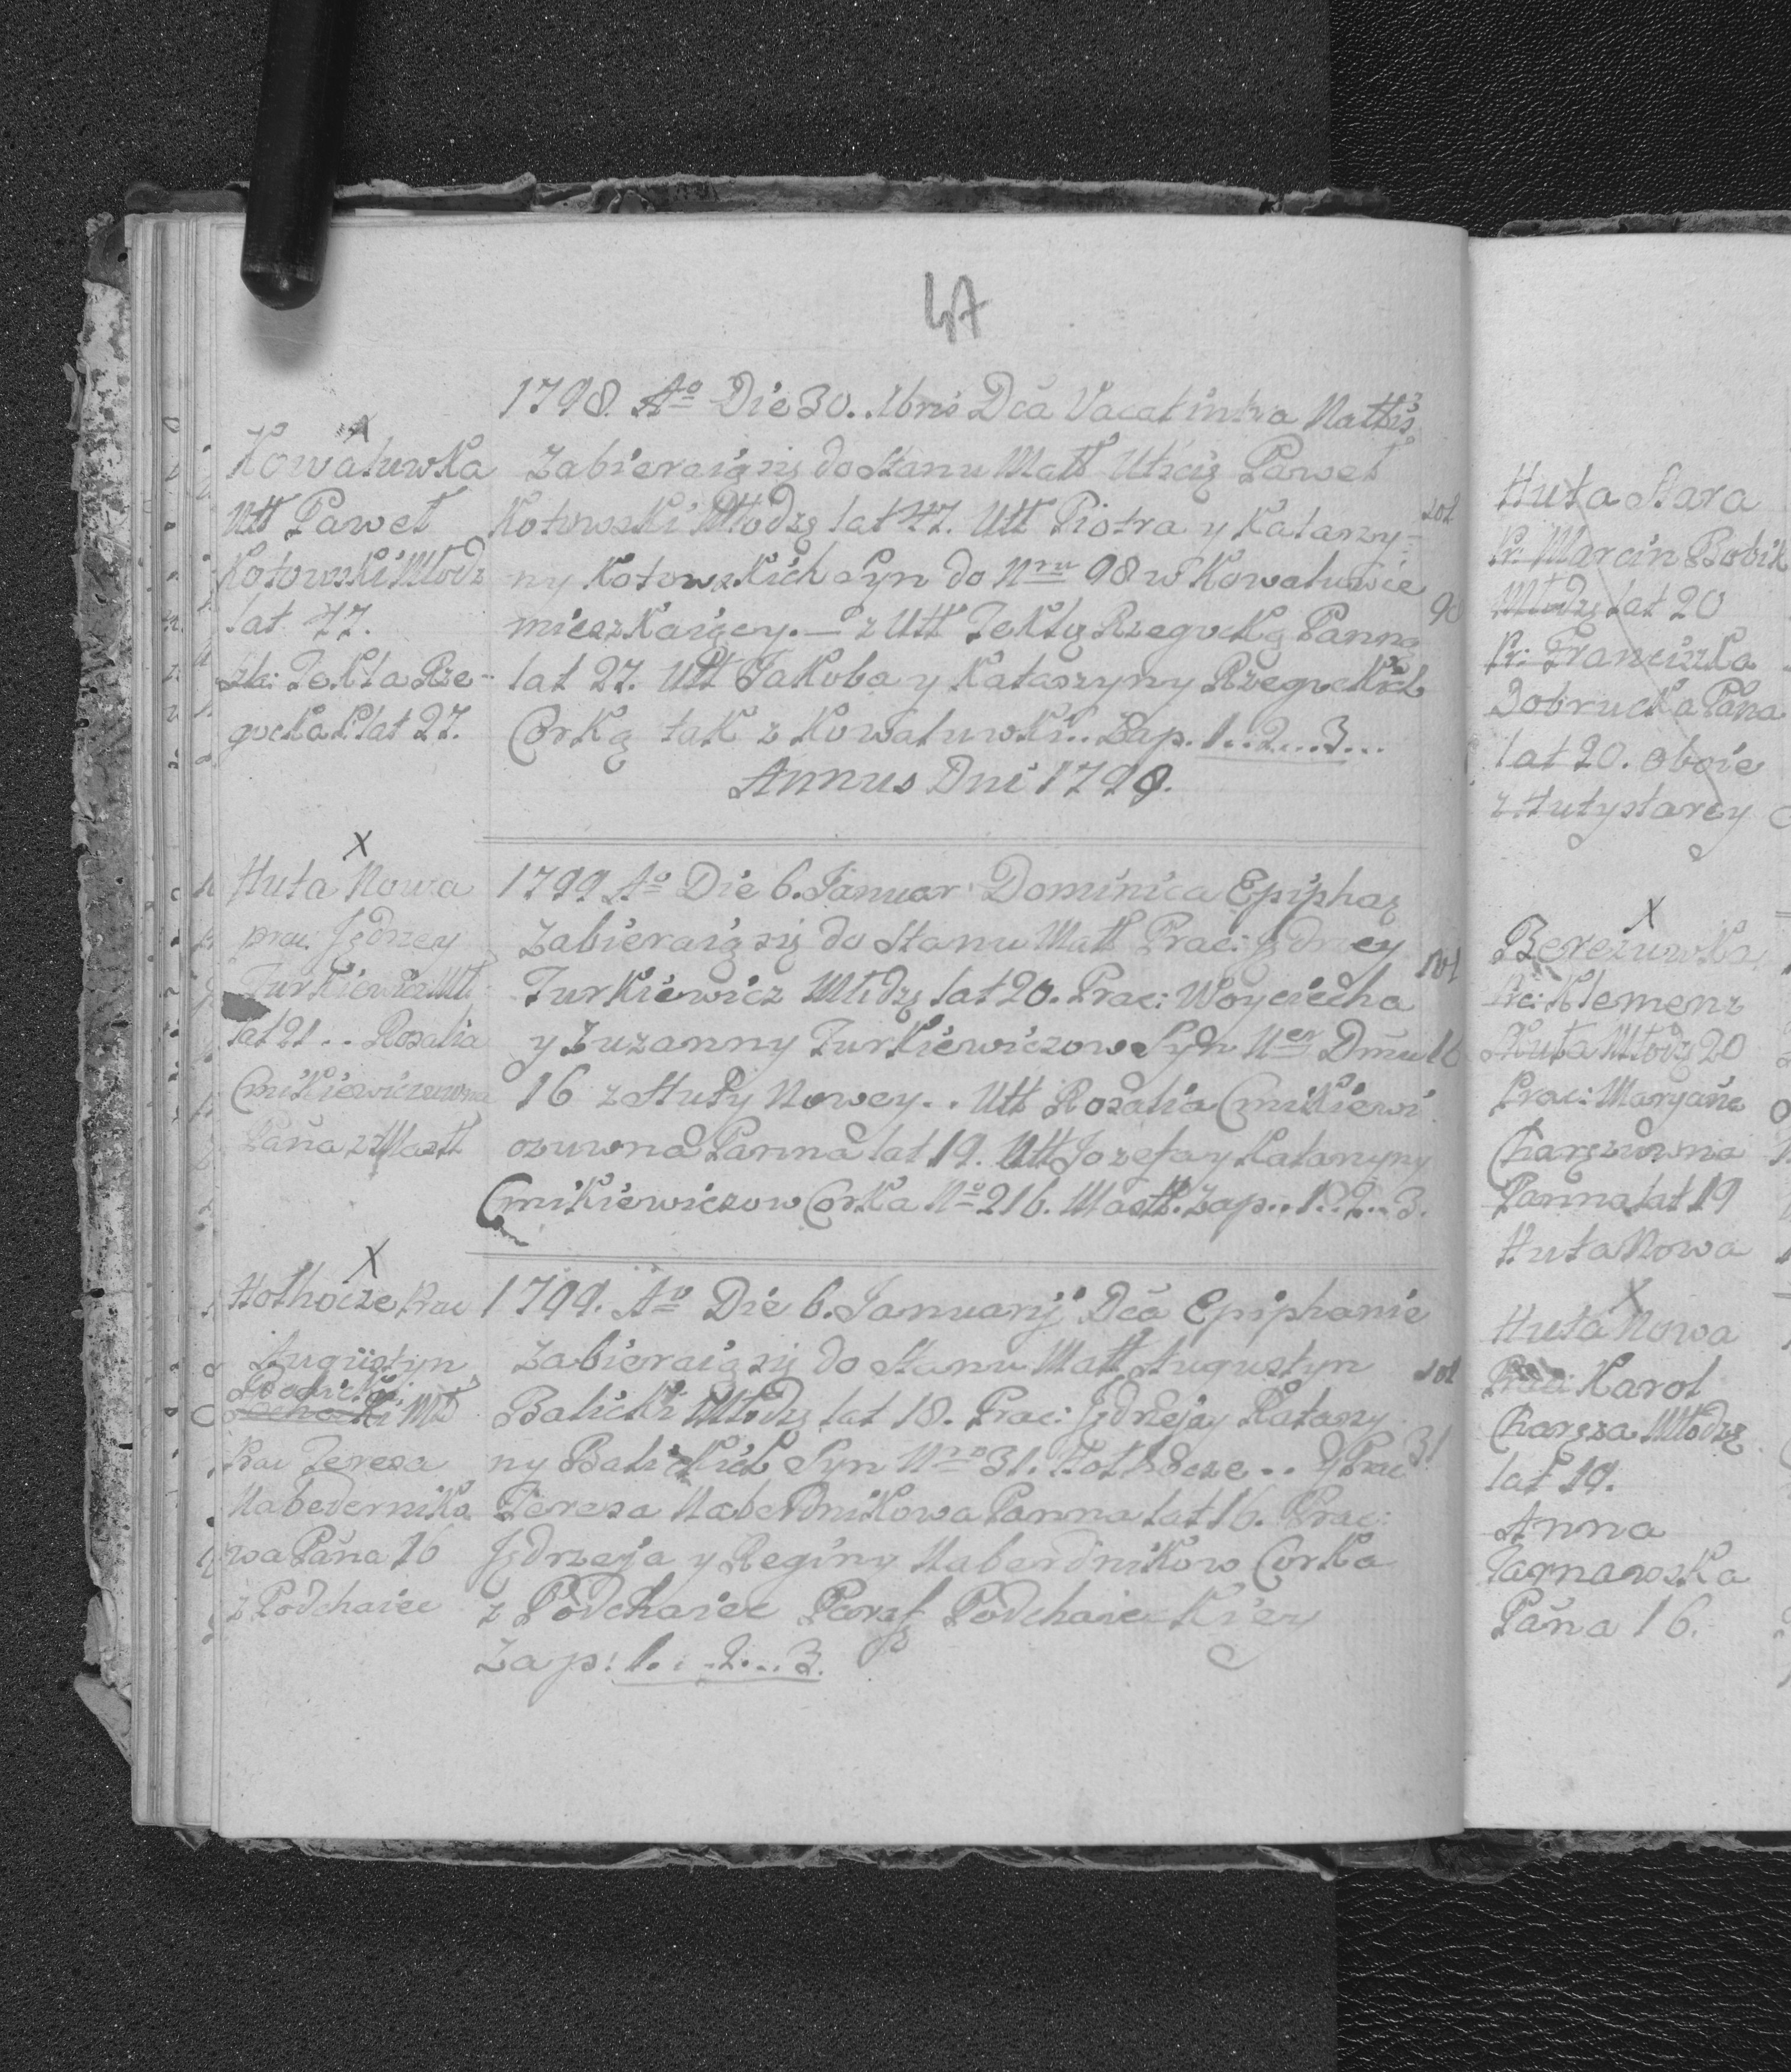 47
1798. Aº Die 30. Xbris Dca Vacat intra Nattis
Kowaluwka
Utt Paweł
Kotowski Młodz
lat 77.
szla: Tekla Rze-
gocka P lat 27.
zabieraią się do stanu Matt Utcig Paweł
Kotowski Młodzą lat 77. Utt Piotra y Katarzy=
ny Kotowskich Syn do Nru 98 w Kowaluwie
mieszkaiący. — z Utt Teklą Rzegocką Panną
lat 27. Utt Jakoba y Katarzyny Rzegockich
Corką tak z Kowaluwki.. Zap. 1..2...3...
sol
98
Annus Dni 1799.
X
Huta Nowa
prac. Jędrzey
Turkiewicz Mł
lat 21 .. Rozalia
Cmikiewiczuwna
Pana z Mastt
1799 Aº Die 6. Januar Dominica Epipha
zabieraią się do stanu Matt Prac: Jędrzey
Turkiewicz Młdzą lat 20. Prac: Woyciecha
y Zuzanny Turkiewiczow Syn Ner Dmu
16 z Huty Nowey.. Utt Rozalia Cmikiewi
czuwna Panna lat 19. Utt Jozefa y Katarzyny
Cmikiewiczow Corka Nº 216. Mastt. Zap.. 1..2..3.
sol
16
X
Hołhocze Prac
Augustyn
Balicki
Mł
Prac Teresa
Nabedernika
wa Pana 16
z Podchaiec
1799. Aº Die 6. Januarij Dca Epiphanie
zabieraią się do stanu Matt Augustyn
Balicki Młodzą lat 18. Prac: Jędrzeja y Katarzy
ny Balickich Syn Nro 31. Hołhocze.. y Prac
Teresa Naberdnikowa Panna lat 16. Prac:
Jędrzeja y Reginy Naberdnikow Corka
z Podchaiec Paraf Podchaieckiey
Zap: 1...2...3.
sol
31
Huta Stara
Pr: Marcin Bobik
Młodzą lat 20
Pr: Franciszka
Dobrucka Pana
lat 20. oboie
z Huty starey
X
Bereżuwka
Prc: Klemenz
Huta Młodz 20
Prac: Maryana
Charęzuwna
Panna lat 19
Huta Nowa
X
Huta Nowa
Prac: Karol
Charęza Młodzą
lat 19.
Anna
Tarnawska
Pana 16.